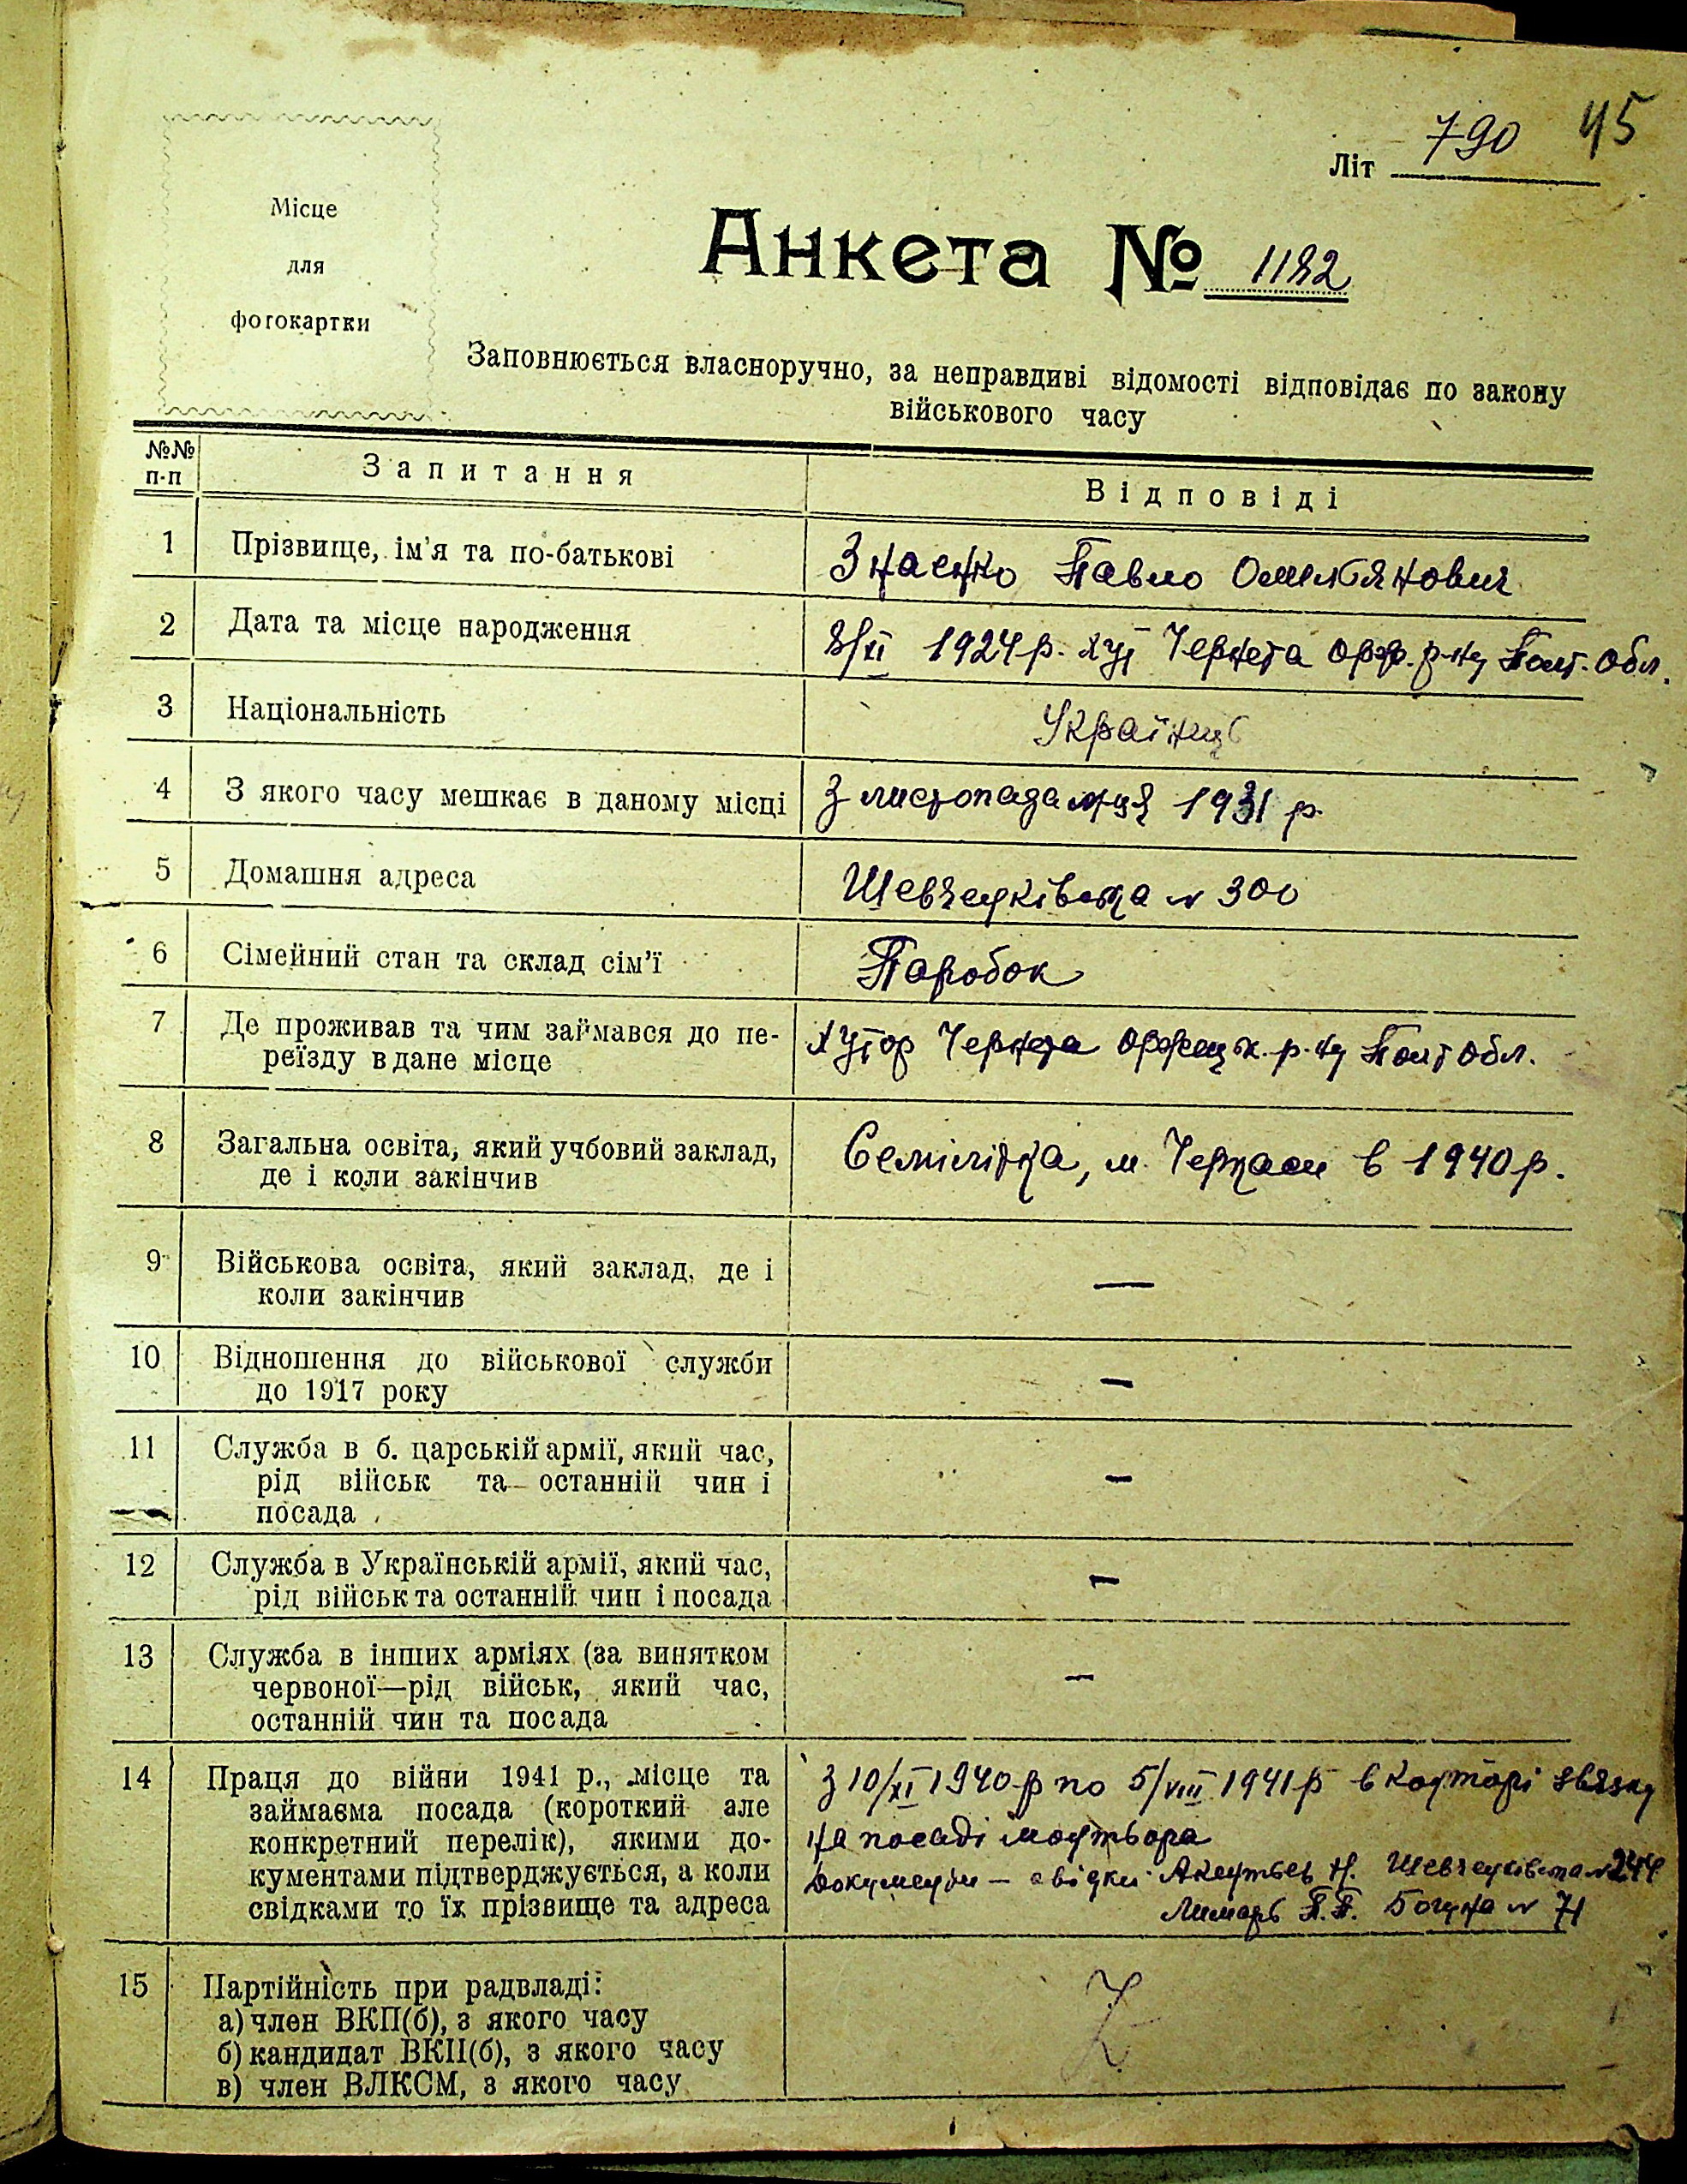 45
Літ 790
Місце
для
фотокартки
Анкета № 1182
Заповнюється власноручно, за неправдиві відомості відповідає по закону
військового часу
№№ п-п Запитання Відповіді
1 Прізвище, ім'я та по-батькові Знаенко Павло Омелянович
2 Дата та місце народження 8/XI 1924 р. хут Чернета Орж. р-ну Полт. Обл.
3 Національність Українць
4 З якого часу мешкає в даному місці З листопада м-ця 1931 р.
5 Домашня адреса Шевченківська № 300
6 Сімейний стан та склад сім'ї Паробок
7 Де проживав та чим займався до пе- Хутор Чернета Оржецьк. р-ну Полт Обл.
реїзду в дане місце
8 Загальна освіта, який учбовий заклад, Семілітка, м. Черкаси в 1940 р.
де і коли закінчив
9 Військова освіта, який заклад, де і —
коли закінчив
10 Відношення до військової служби —
до 1917 року
11 Служба в б. царській армії, який час, —
рід військ та останній чин і
посада
12 Служба в Українській армії, який час, —
рід військ та останній чин і посада
13 Служба в інших арміях (за винятком —
червоної—рід військ, який час,
останній чин та посада
14 Праця до війни 1941 р., місце та З 10/XI 1940 р по 5/VIII 1941 р в конторі звязку
займаєма посада (короткий але
конкретний перелік), якими до- на посаді монтьора
кументами підтверджується, а коли Документи – свідки: Н. Шевченківська № 244
свідками то їх прізвище та адреса Лимарь П.П. Богуна № 71
15 Партійність при радвладі:
а) член ВКП(б), з якого часу
б) кандидат ВКП(б), з якого часу
в) член ВЛКСМ, з якого часу